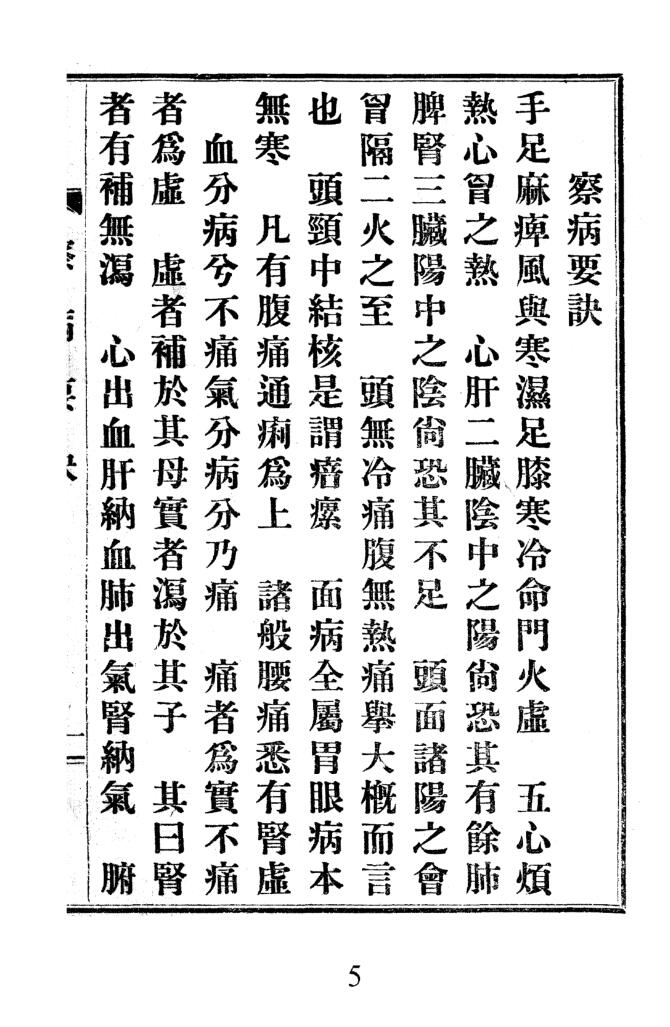 察病要訣
手足麻痺風與寒濕足膝寒冷命門火虛　五心煩
熱心胷之熱　心肝二臟陰中之陽尙恐其有餘肺
脾腎三臟陽中之陰尙恐其不足　頭面諸陽之會
胷隔二火之至　頭無冷痛腹無熱痛舉大槪而言
也　頭頸中結核是謂瘖瘰　面病全屬胃眼病本
無寒　凡有腹痛通痢爲上　諸般腰痛悉有腎虛
血分病兮不痛氣分病分乃痛　痛者爲實不痛
者爲虛　虛者補於其母實者瀉於其子　其曰腎
者有補無瀉　心出血肝納血肺出氣腎納氣　腑
察病要訣
一
5